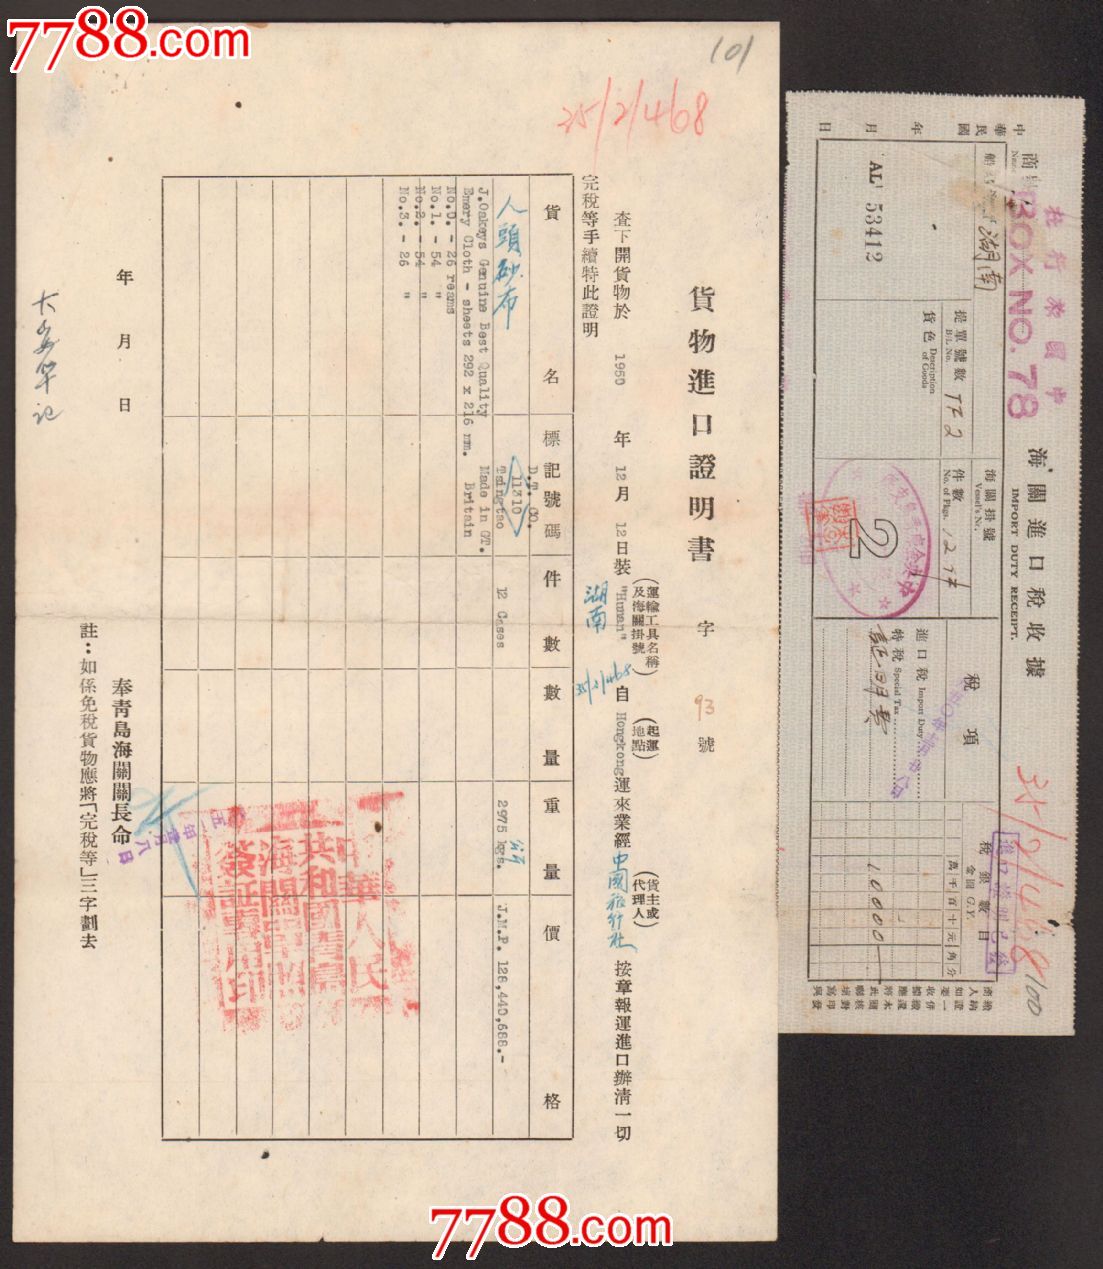 7788.com
101
25/2/4/68
貨物進口證明書
字 93 號
查下開貨物於 1950 年 12 月 12 日裝 (運輸工具名稱及海關掛號) "Hunan" 湖南 35/2/468 自 (起運地點) Hongkong 運來業經 (貨主或代理人) 中國旅行社 按章報運進口辦清一切
完稅等手續特此證明
貨名 標記號碼 件數 數量 重量 價格
人頭砂布
D.T. CO.
11310
Tsingtao
12 Cases
2975 kgs.
J.M.P. 128,440,688.-
J.Oakeys Genuine Best Quality Made in GT.
Emery Cloth - sheets 292 x 216 mm. Britain
No.0. - 26 reams
No.1. - 54 "
No.2. - 54 "
No.3. - 26 "
中華人民
共和國青島
海關
簽証專用印
年 月 日
奉青島海關關長命
註:如係免稅貨物應將「完稅等」三字劃去
海關進口稅收據
IMPORT DUTY RECEIPT.
BOX NO. 78
中華民國 年 月 日
湖南
海關掛號
Vessel's No.
提單號數
B/L No.
TF 2
件數
No. of Pkgs.
12
AL 53412
貨色 Description of Goods
2
稅項
進口稅 Import Duty
特稅 Special Tax
稅銀數目
金圓 G.Y.
萬千百十元角分
10000
35/2/468
100
7788.com